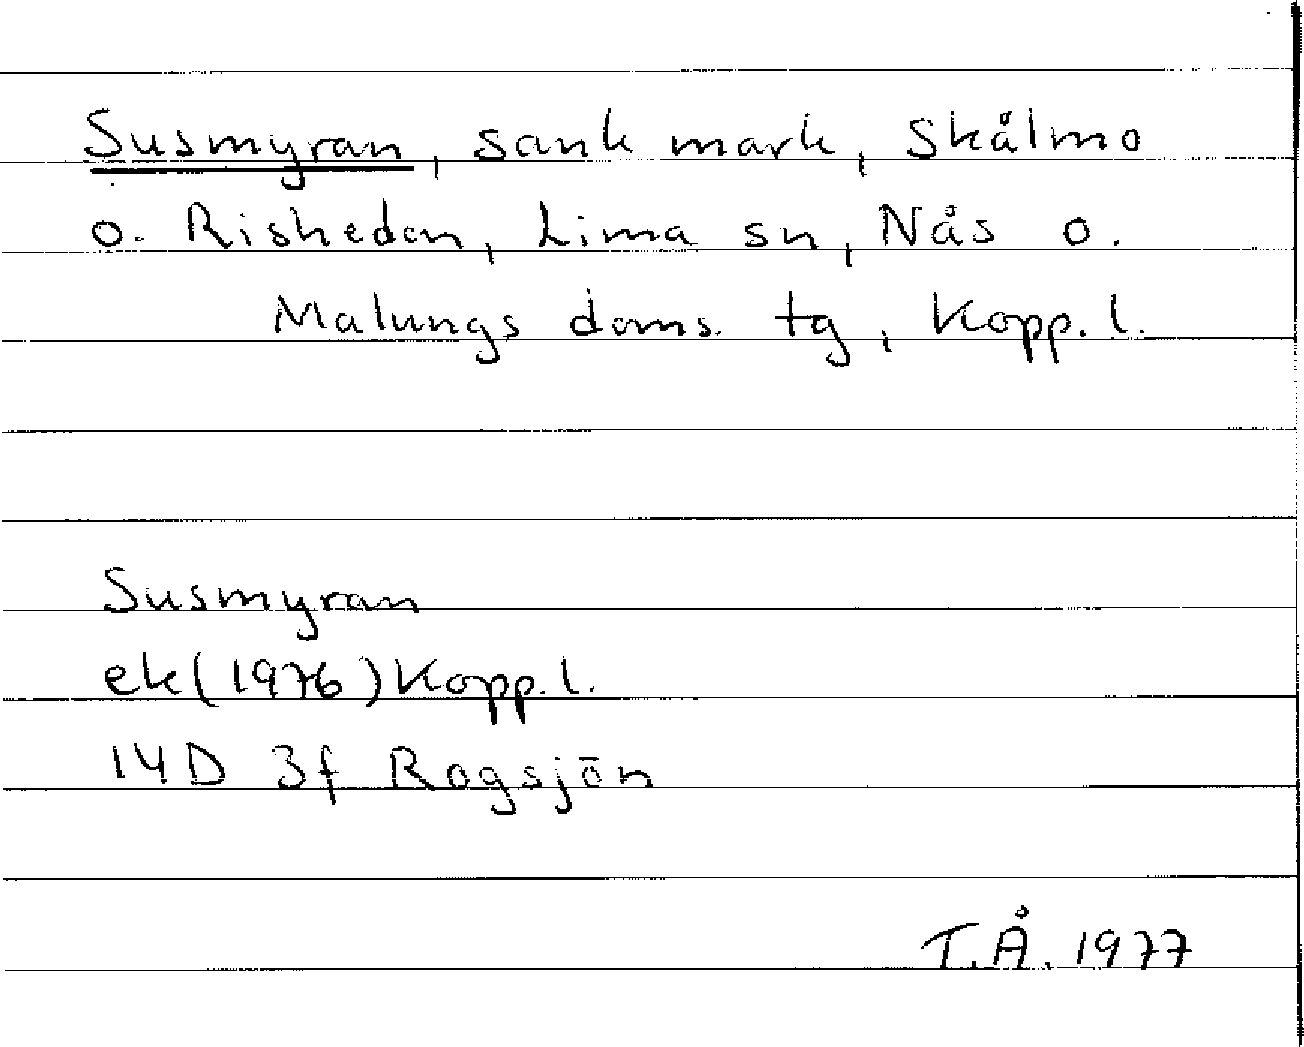 Susmyran, sank mark, Skålmo
o. Rishedan, Lima sn, Nås o.
Malungs doms. tg, Kopp. l.
Susmyran
ek(1976) Kopp. l.
14D 3f Rogsjön
T.Å. 1977